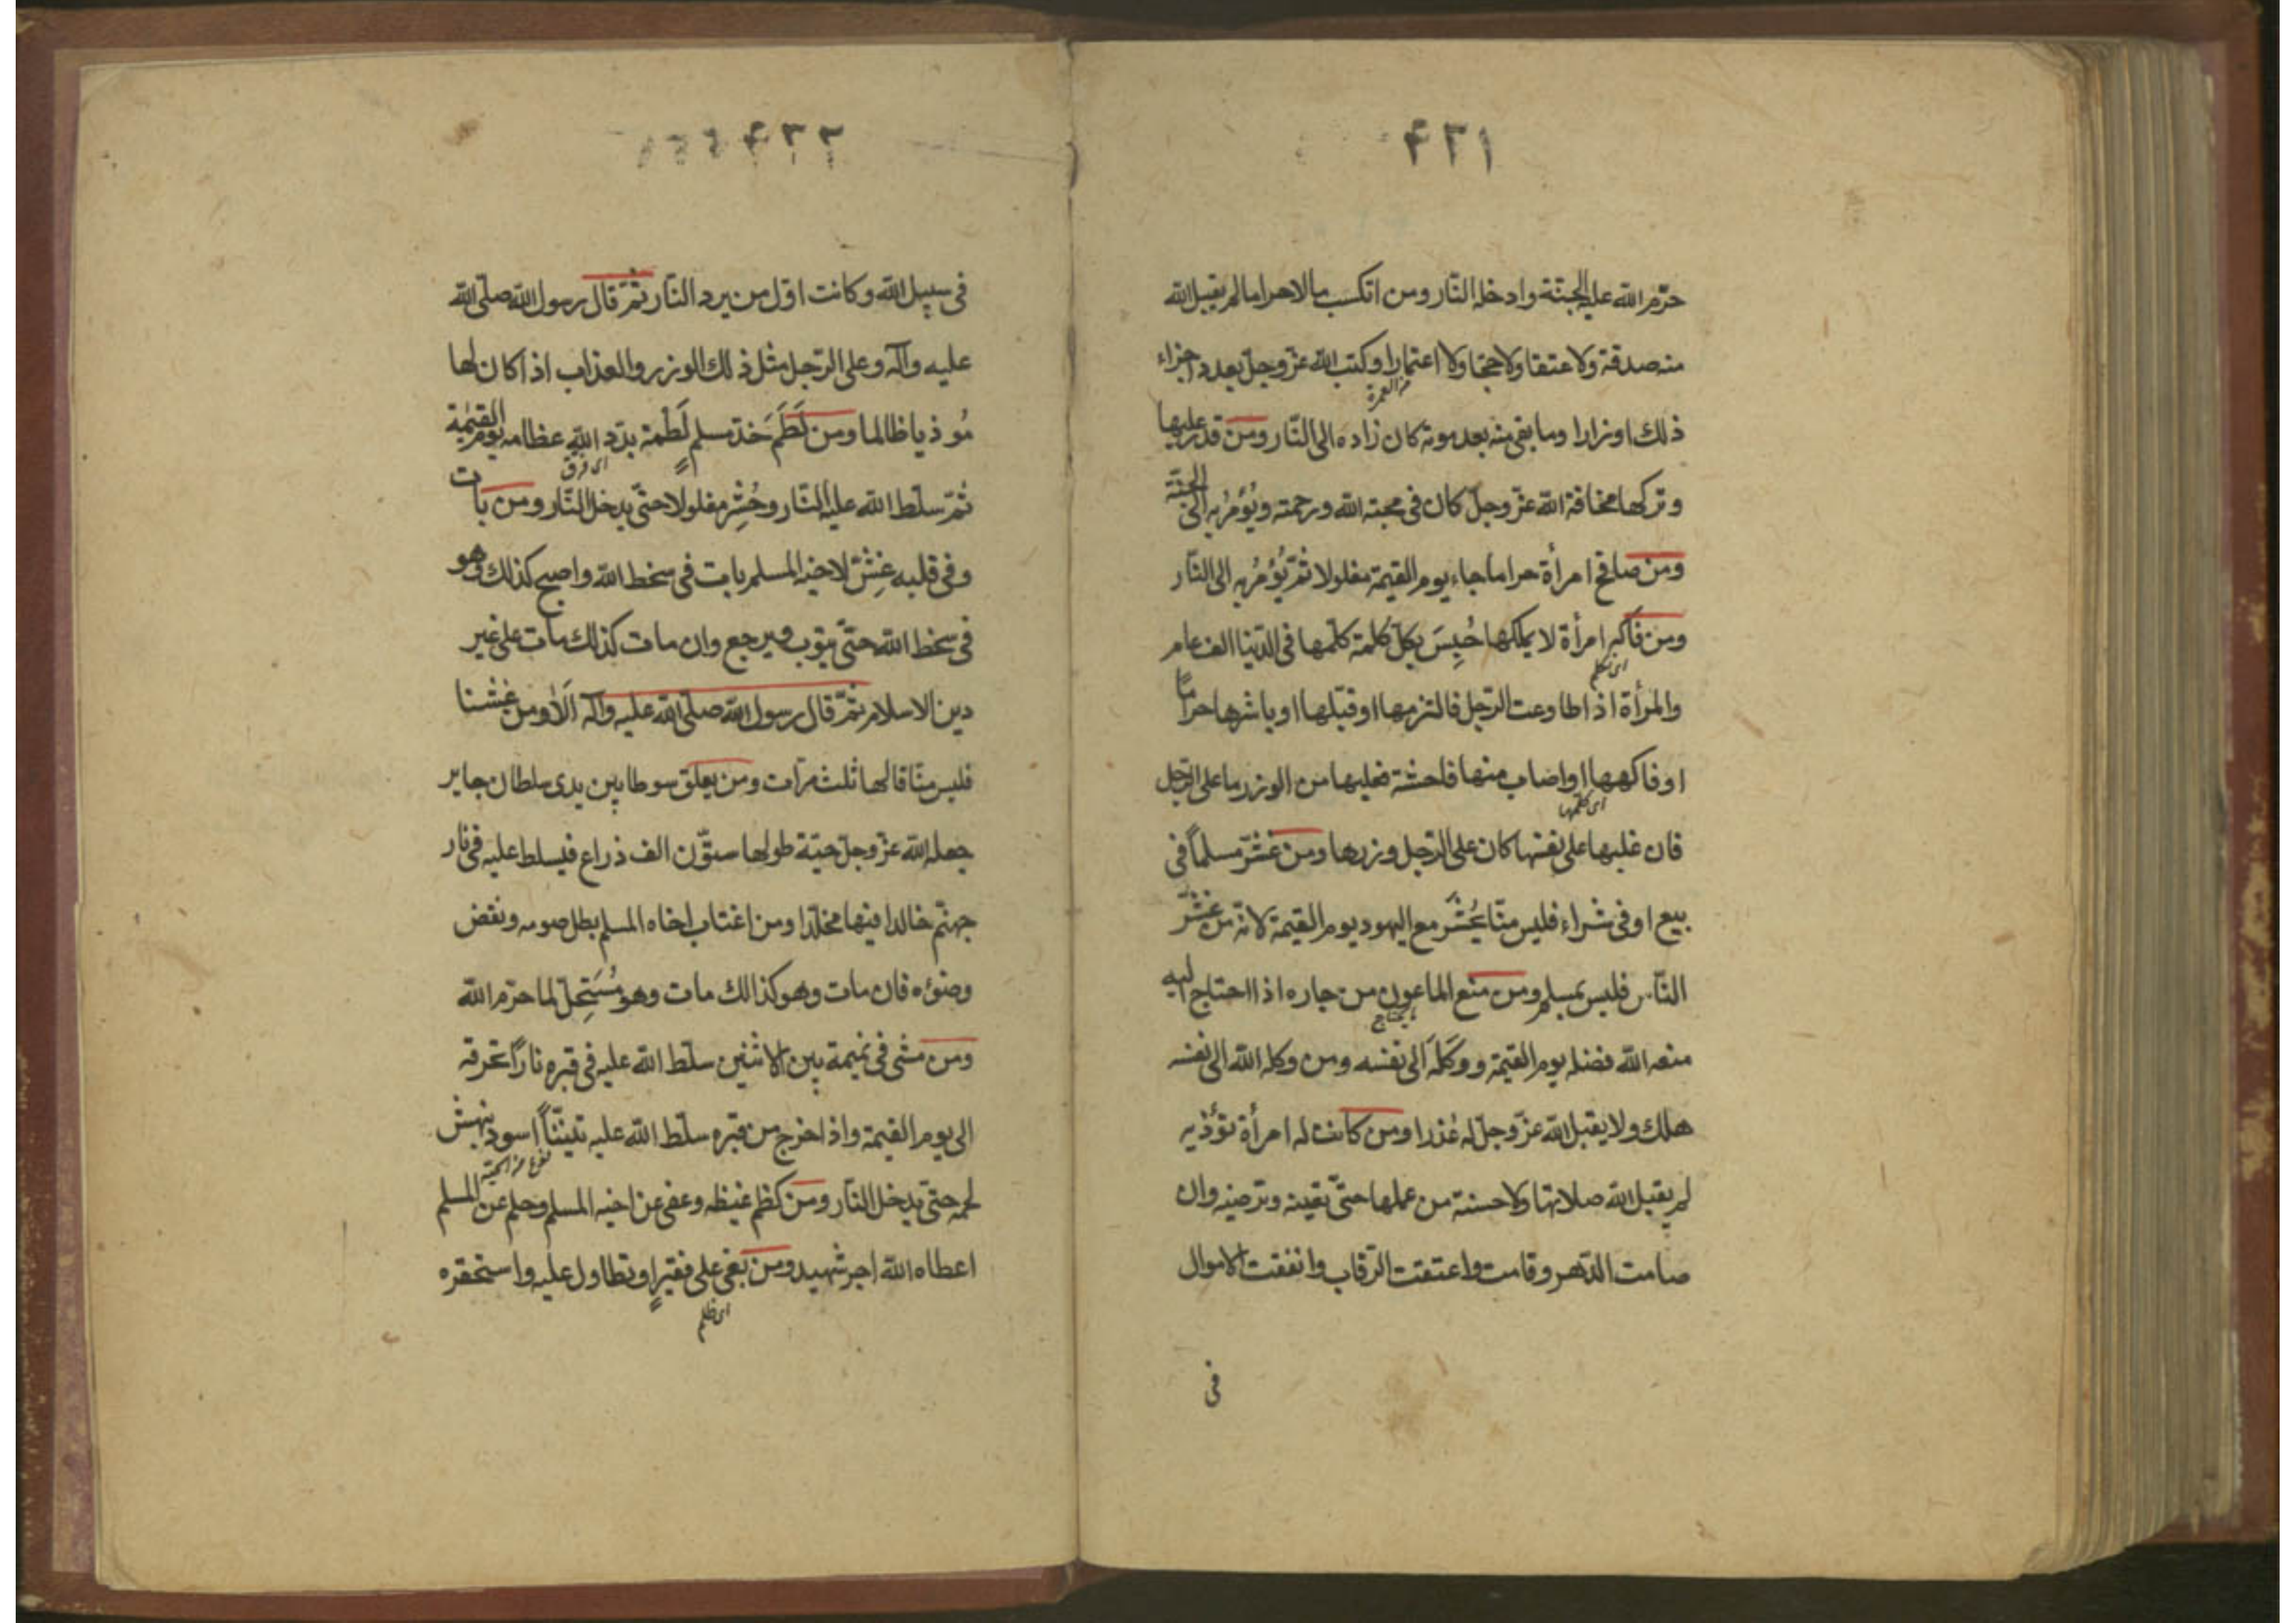 حرّم الله عليه الجنّة وادخله النّار ومن اكتسب مالا حراما لم يقبل الله
منه صدقة ولا عتقا ولا حجّا ولا اعتمارا وكتب الله عزّ وجلّ بعدد اجزاء
من العمرة
ذلك اوزارا وما بقى منه بعد موته كان زاده الى النّار ومن قدر عليها
وتركها مخافة الله عزّ وجلّ كان فى محبته الله ورحمته ويُؤمَرُ به الى الجنّة
ومن صافح امرأة حراما جاء يوم القيمة مغلولا ثمّ يُؤمَرُ به الى النّار
ومن فاكه امرأة لا يملكها حُبِسَ بكلّ كلمة كلّمها فى الدّنيا الف عام
اى تكلم
والمرأة اذا طاوعت الرّجل فالتزمها او قبّلها او باشرها حراماً
او فاكهها او اصاب منها فاحشة فعليها من الوزر ما على الرّجل
اى كلّمها
فان غلبها على نفسها كان على الرّجل وزرها ومن غشّ مسلماً فى
بيع او فى شراء فليس منّا يُحشَر مع اليهود يوم القيمة لانّه من غشّ
النّاس فليس بمسلم ومن منع الماعون من جاره اذا احتاج اليه
ما يحتاج
منعه الله فضله يوم القيمة ووكله الى نفسه ومن وكله الله الى نفسه
هلك ولا يقبل الله عزّ وجلّ له عُذرا ومن كانت له امرأة تؤذيه
لم يقبل الله صلاتها ولا حسنة من عملها حتّى تعينه وترضيه وان
صامت الدّهر وقامت واعتقت الرّقاب وانفقت الاموال
فى
٤٣٢
فى سبيل الله وكانت اوّل من يرد النّار ثمّ قال رسول الله صلّى الله
عليه وآله وعلى الرّجل مثل ذلك الوزر والعذاب اذا كان لها
مُوذيا ظالما ومن لَطَمَ خدّ مسلمٍ لَطمة بدّد الله عظامه يوم القيٰمة
اى فرق
ثمّ سلّط الله عليه النّار وحُشِر مغلولا حتّى يدخل النّار ومن بات
وفى قلبه غِشّ لاخيه المسلم بات فى سخط الله واصبح كذلك وهو
فى سخط الله حتّى يتوب ويرجع وان مات كذلك مات على غير
دين الاسلام ثمّ قال رسول الله صلّى الله عليه وآله اَلا ومن غشنا
فليس منّا قالها ثلث مرّات ومن يعلق سوطا بين يدى سلطان جاير
جعله الله عزّ وجلّ حيّة طولها ستّون الف ذراع فيسلط عليه فى نار
جهنّم خالدا فيها مخلّدا ومن اغتاب اخاه المسلم بطل صومه ونقض
وضوءه فان مات وهو كذالك مات وهو مُستَحِلّ لما حرّم الله
ومن مشى فى نميمة بين الاثنين سلّط الله عليه فى قبره ناراً تحرقه
الى يوم القيمة واذا خرج من قبره سلّط الله عليه تنيّناً اسود ينهش
نوع من الحيّة
لحمه حتّى يدخل النّار ومن كظم غيظه وعفى عن اخيه المسلم وحلم عن المسلم
اعطاه الله اجر شهيد ومن بغى على فقيرٍ او تطاول عليه واستحقره
اى ظلم